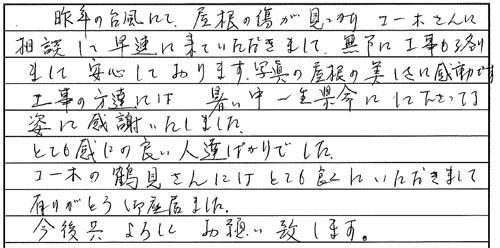 昨年の台風にて、屋根の傷が見つかり コーホさんに
相談して早速に来ていただきまして、無事に工事も終り
まして安心しております。写真の屋根の美しさに感動です
工事の方達には 暑い中一生懸命にして下さってる
姿に感謝いたしました。
とても感じの良い人達ばかりでした。
コーホの鶴見さんにはとても良くしていただきまして
有りがとう御座居ました。
今後共よろしくお願い致します。